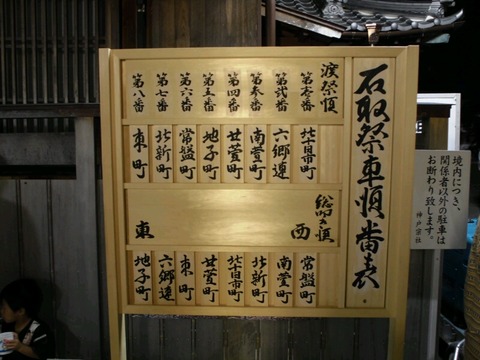 石取祭車順番表
渡祭順
第壱番
第弐番
第参番
第四番
第五番
第六番
第七番
第八番
北十日市町
六郷連
南萱町
廿萱町
地子町
常盤町
北新町
東町
総叩き順
西
東
常盤町
南萱町
北新町
北十日市町
廿萱町
東町
六郷連
地子町
境内につき、
関係者以外の駐車は
お断わり致します。
神戸宗社